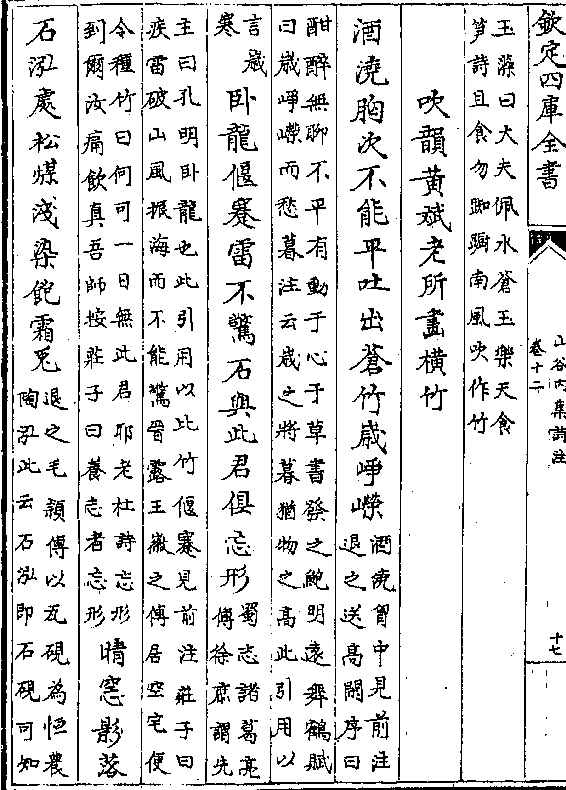 欽定四庫全書
山谷內集詩注
卷十二
十七
玉藻曰大夫佩水蒼玉樂天食
笋詩且食勿踟躕南風吹作竹
次韻黃斌老所畫橫竹
酒澆胸次不能平吐出蒼竹歲崢嶸
酒澆胷中見前注
退之送高閑序曰
酣醉無聊不平有動于心于草書發之鮑明遠舞鶴賦
曰歲崢嶸而愁暮注云歲之將暮猶物之高此引用以
言歲
寒
卧龍偃蹇雷不驚石與此君俱忘形
蜀志諸葛亮
傳徐庶謂先
主曰孔明卧龍也此引用以比竹偃蹇見前注莊子曰
疾雷破山風振海而不能驚晉露王徽之傳居空宅便
令種竹曰何可一日無此君耶老杜詩忘形
到爾汝痛飲真吾師按莊子曰養志者忘形
晴窓影落
石泓處松煤淺染飽霜兎
退之毛頴傳以瓦硯為恒農
陶泓此云石泓即石硯可知